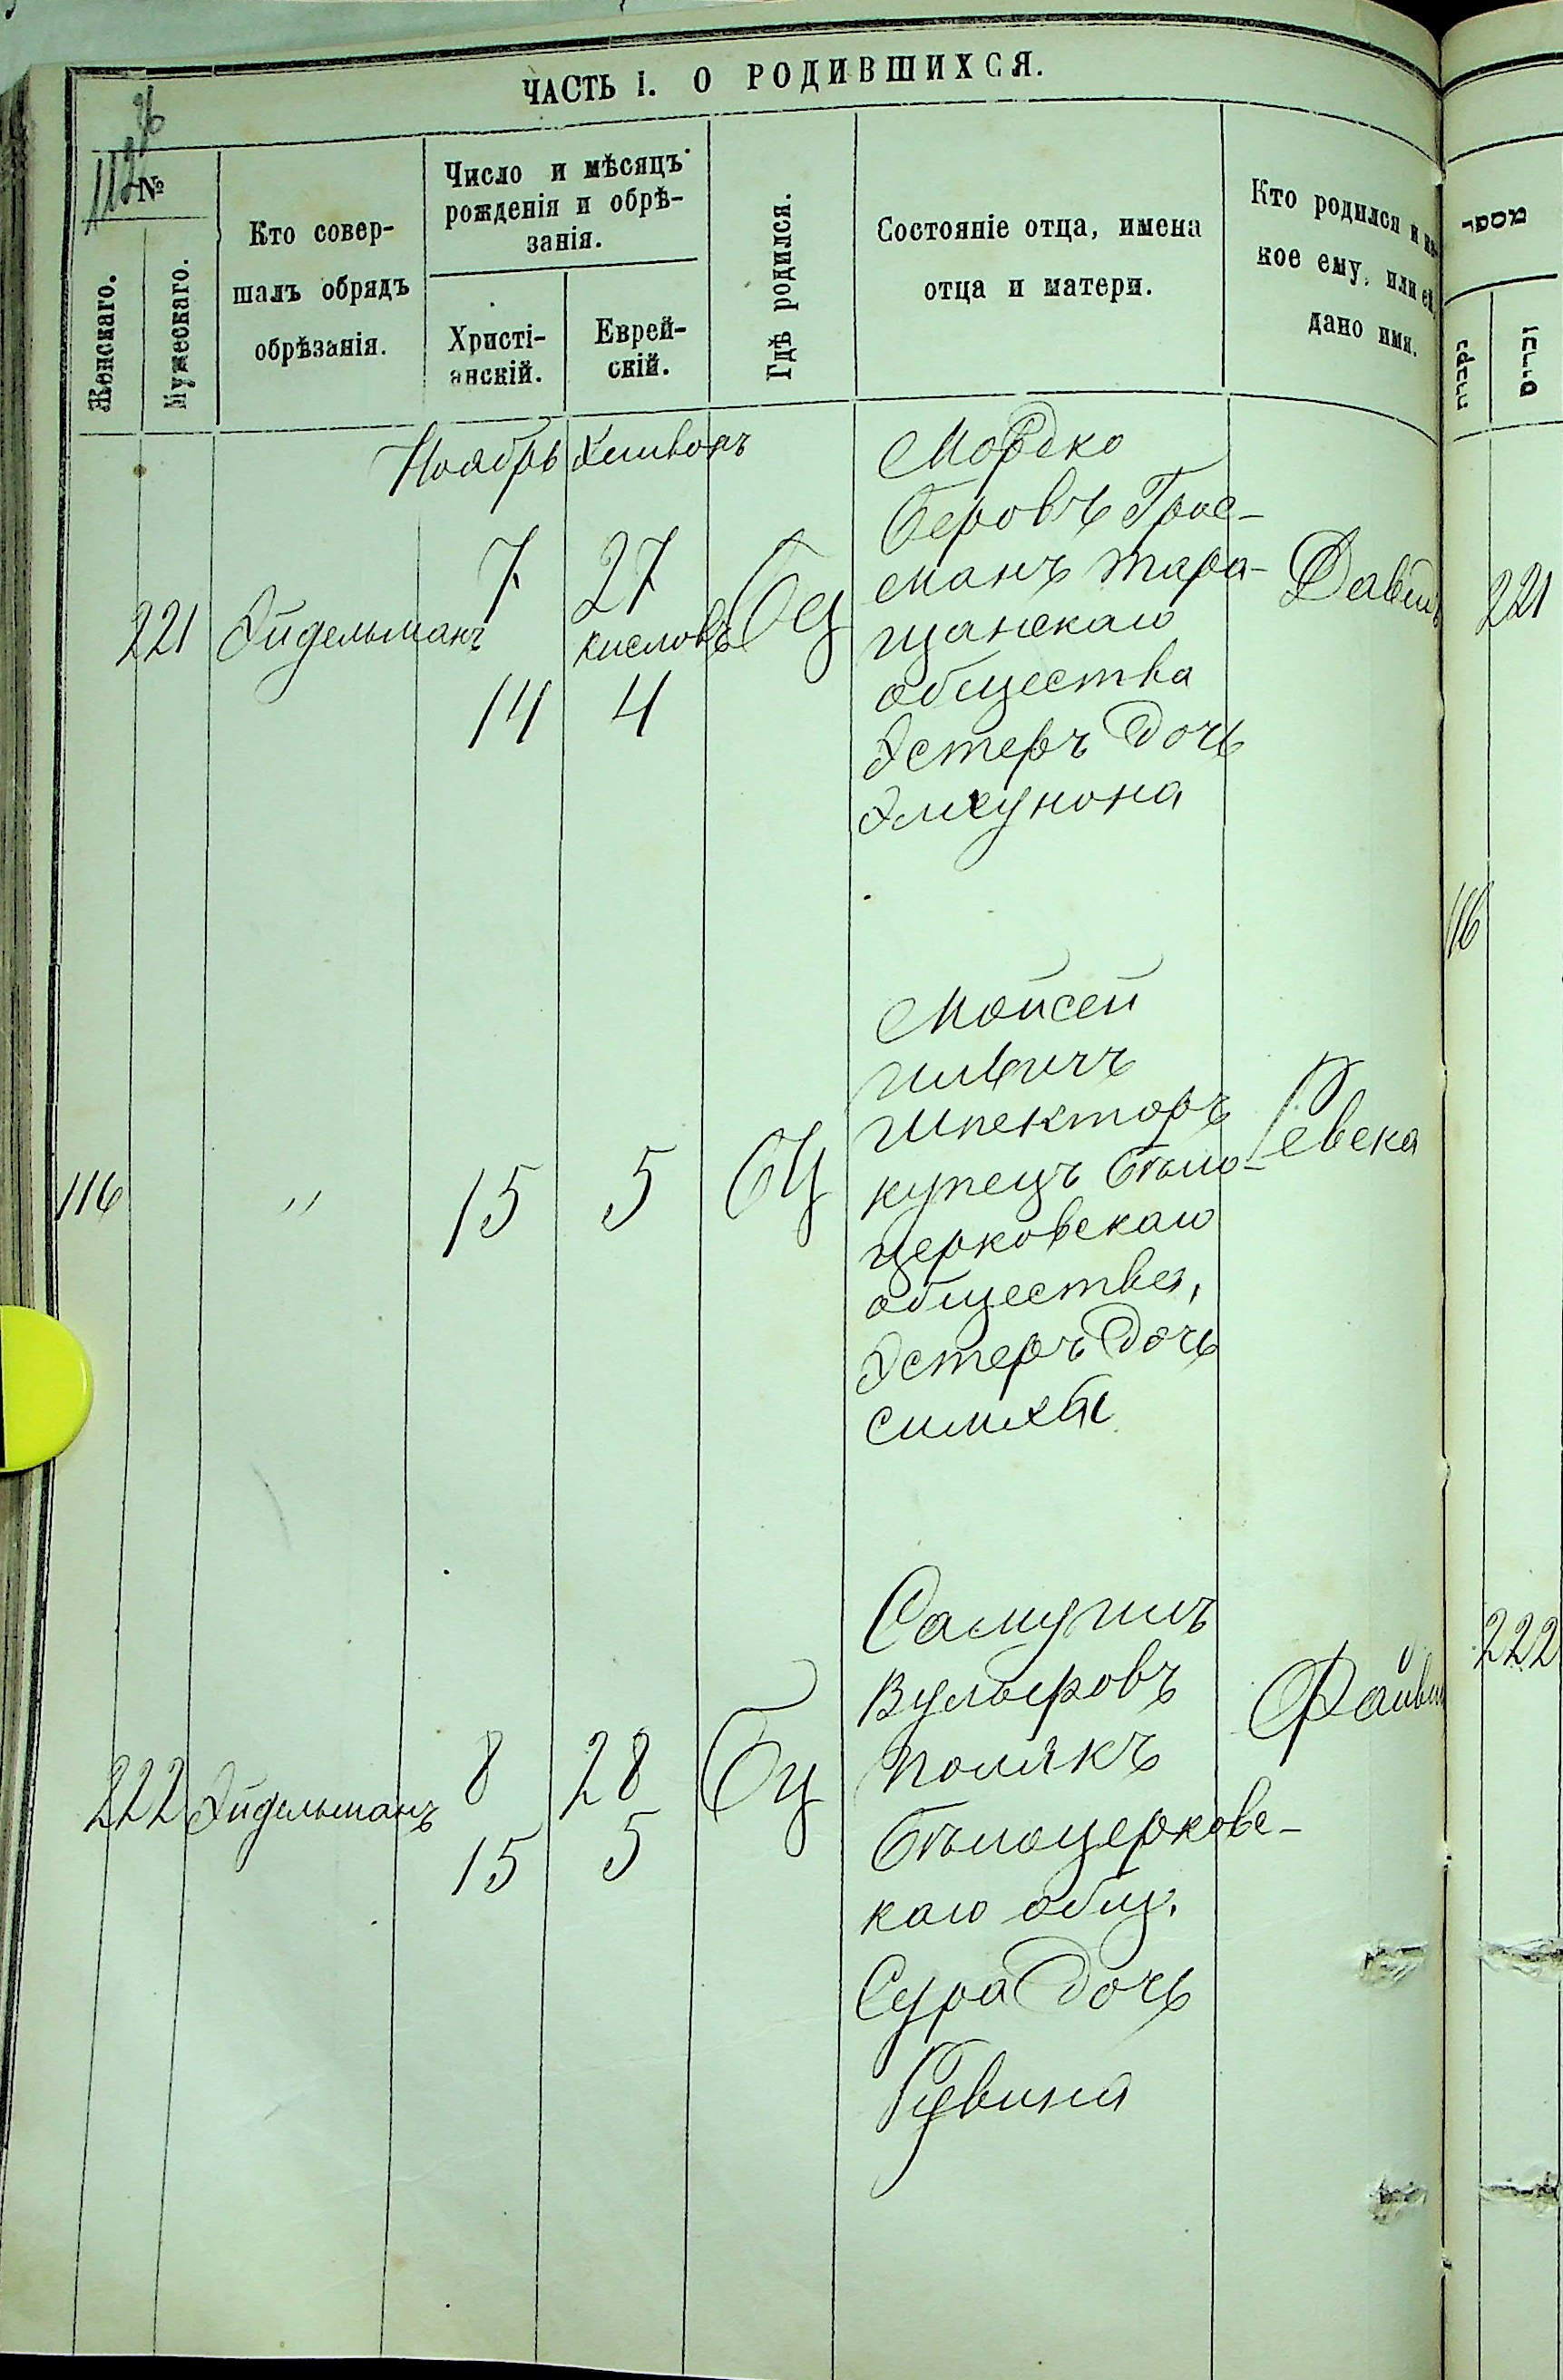 ЧАСТЬ I. О РОДИВШИХСЯ.
№
Женскаго.
Мужескаго.
Кто совер-
шалъ обрядъ
обрѣзанія.
Число и мѣсяцъ
рожденія и обрѣ-
занія.
Христі-
анскій.
Еврей-
скій.
Гдѣ родился.
Состояніе отца, имена
отца и матери.
Кто родился и ка-
кое ему, или ей
дано имя.
מספר
Ноябрь Хешвонъ
221 Эйдельманъ
7 27
кисловъ
14 4
Бц
Мордко
Беровъ Грос-
манъ тара-
щанскаго
общества
Эстеръ дочь
Элхунона
Давидъ
221
116 " 15 5 Бц
Мойсей
Шпекторъ
купецъ Бѣло-
церковскаго
общества,
Эстеръ дочь
Симхи
Ревека
116
222 Эйдельманъ
8 28
15 5
Бц
Самуилъ
Вульфовъ
Полякъ
Бѣлоцерковс-
каго общ.
Сура дочь
Рувина
Файвиш
222